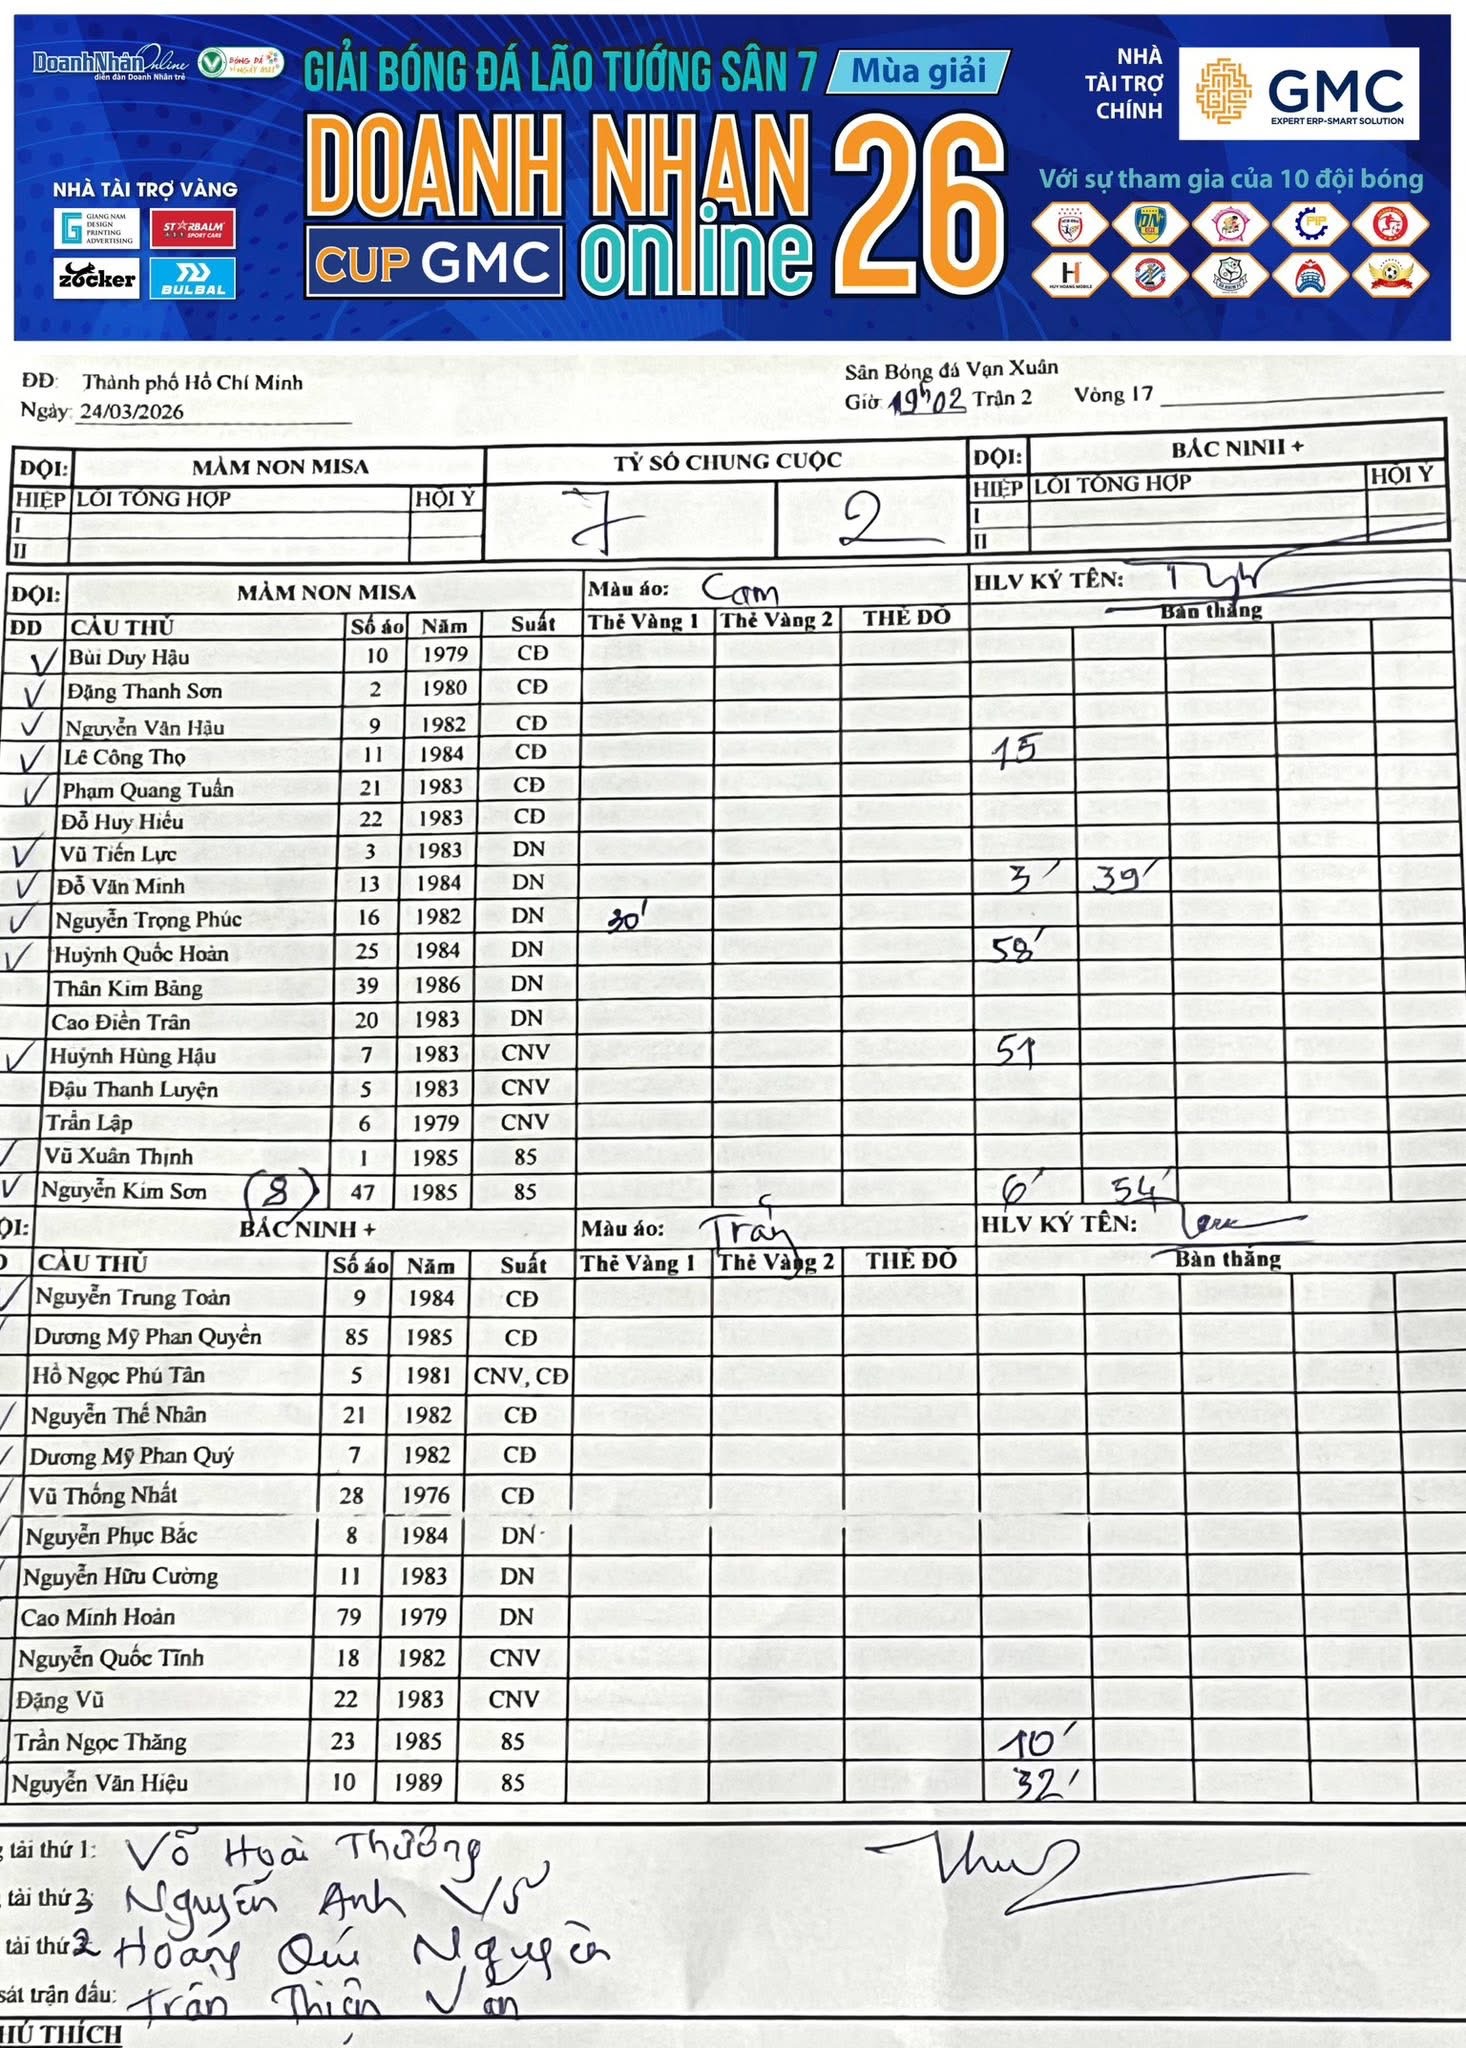 DoanhNhânOnline
diễn đàn Doanh Nhân trẻ
BÓNG ĐÁ
GIẢI BÓNG ĐÁ LÃO TƯỚNG SÂN 7 Mùa giải
DOANH NHÂN 26
CUP GMC online
NHÀ TÀI TRỢ VÀNG
GIANG NAM DESIGN PRINTING ADVERTISING
STARBALM SPORT CARE
zocker
BULBAL
NHÀ TÀI TRỢ CHÍNH
GMC
EXPERT ERP-SMART SOLUTION
Với sự tham gia của 10 đội bóng
PIP
HUY HOANG MOBILE
ĐĐ: Thành phố Hồ Chí Minh
Ngày: 24/03/2026
Sân Bóng đá Vạn Xuân
Giờ 19h02 Trận 2 Vòng 17
ĐỘI: MẦM NON MISA TỶ SỐ CHUNG CUỘC ĐỘI: BẮC NINH +
HIỆP LỖI TỔNG HỢP HỘI Ý 7 2 HIỆP LỖI TỔNG HỢP HỘI Ý
I I
II II
ĐỘI: MẦM NON MISA Màu áo: Cam HLV KÝ TÊN:
ĐD CẦU THỦ Số áo Năm Suất Thẻ Vàng 1 Thẻ Vàng 2 THẺ ĐỎ Bàn thắng
Bùi Duy Hậu 10 1979 CĐ
Đặng Thanh Sơn 2 1980 CĐ
Nguyễn Văn Hậu 9 1982 CĐ
Lê Công Thọ 11 1984 CĐ 15
Phạm Quang Tuấn 21 1983 CĐ
Đỗ Huy Hiếu 22 1983 CĐ
Vũ Tiến Lực 3 1983 DN
Đỗ Văn Minh 13 1984 DN 3' 39'
Nguyễn Trọng Phúc 16 1982 DN 30'
Huỳnh Quốc Hoàn 25 1984 DN 58'
Thân Kim Bảng 39 1986 DN
Cao Điền Trân 20 1983 DN
Huỳnh Hùng Hậu 7 1983 CNV 51
Đậu Thanh Luyện 5 1983 CNV
Trần Lập 6 1979 CNV
Vũ Xuân Thịnh 1 1985 85
Nguyễn Kim Sơn (8) 47 1985 85 6' 54'
ỘI: BẮC NINH + Màu áo: Trắng HLV KÝ TÊN:
D CẦU THỦ Số áo Năm Suất Thẻ Vàng 1 Thẻ Vàng 2 THẺ ĐỎ Bàn thắng
Nguyễn Trung Toàn 9 1984 CĐ
Dương Mỹ Phan Quyền 85 1985 CĐ
Hồ Ngọc Phú Tân 5 1981 CNV, CĐ
Nguyễn Thế Nhân 21 1982 CĐ
Dương Mỹ Phan Quý 7 1982 CĐ
Vũ Thống Nhất 28 1976 CĐ
Nguyễn Phục Bắc 8 1984 DN
Nguyễn Hữu Cường 11 1983 DN
Cao Minh Hoàn 79 1979 DN
Nguyễn Quốc Tĩnh 18 1982 CNV
Đặng Vũ 22 1983 CNV
Trần Ngọc Thăng 23 1985 85 10'
Nguyễn Văn Hiệu 10 1989 85 32'
g tài thứ 1: Võ Hoài Thương
tài thứ 3 Nguyễn Anh Vũ
tài thứ 2 Hoàng Quí Nguyên
sát trận đấu: Trần Thiện Văn
HÚ THÍCH